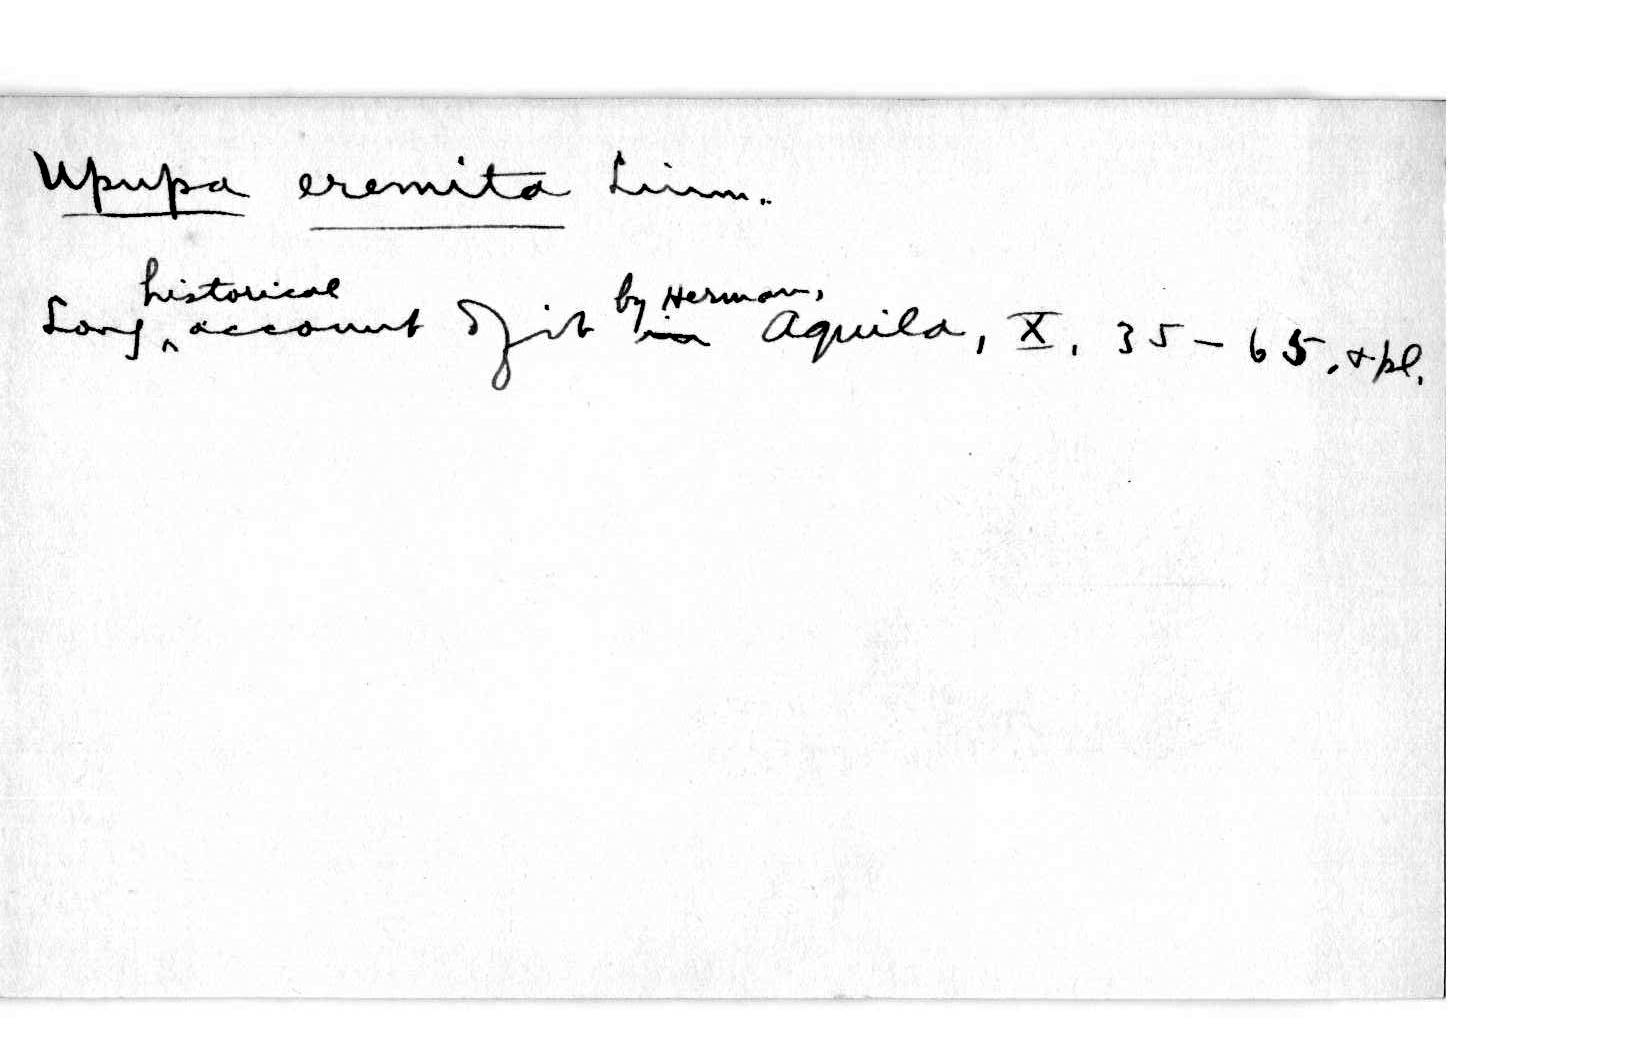 Upupa eremita Linn.
Long historical account of it by Herman, in Aquila, X, 35-65, & pl.